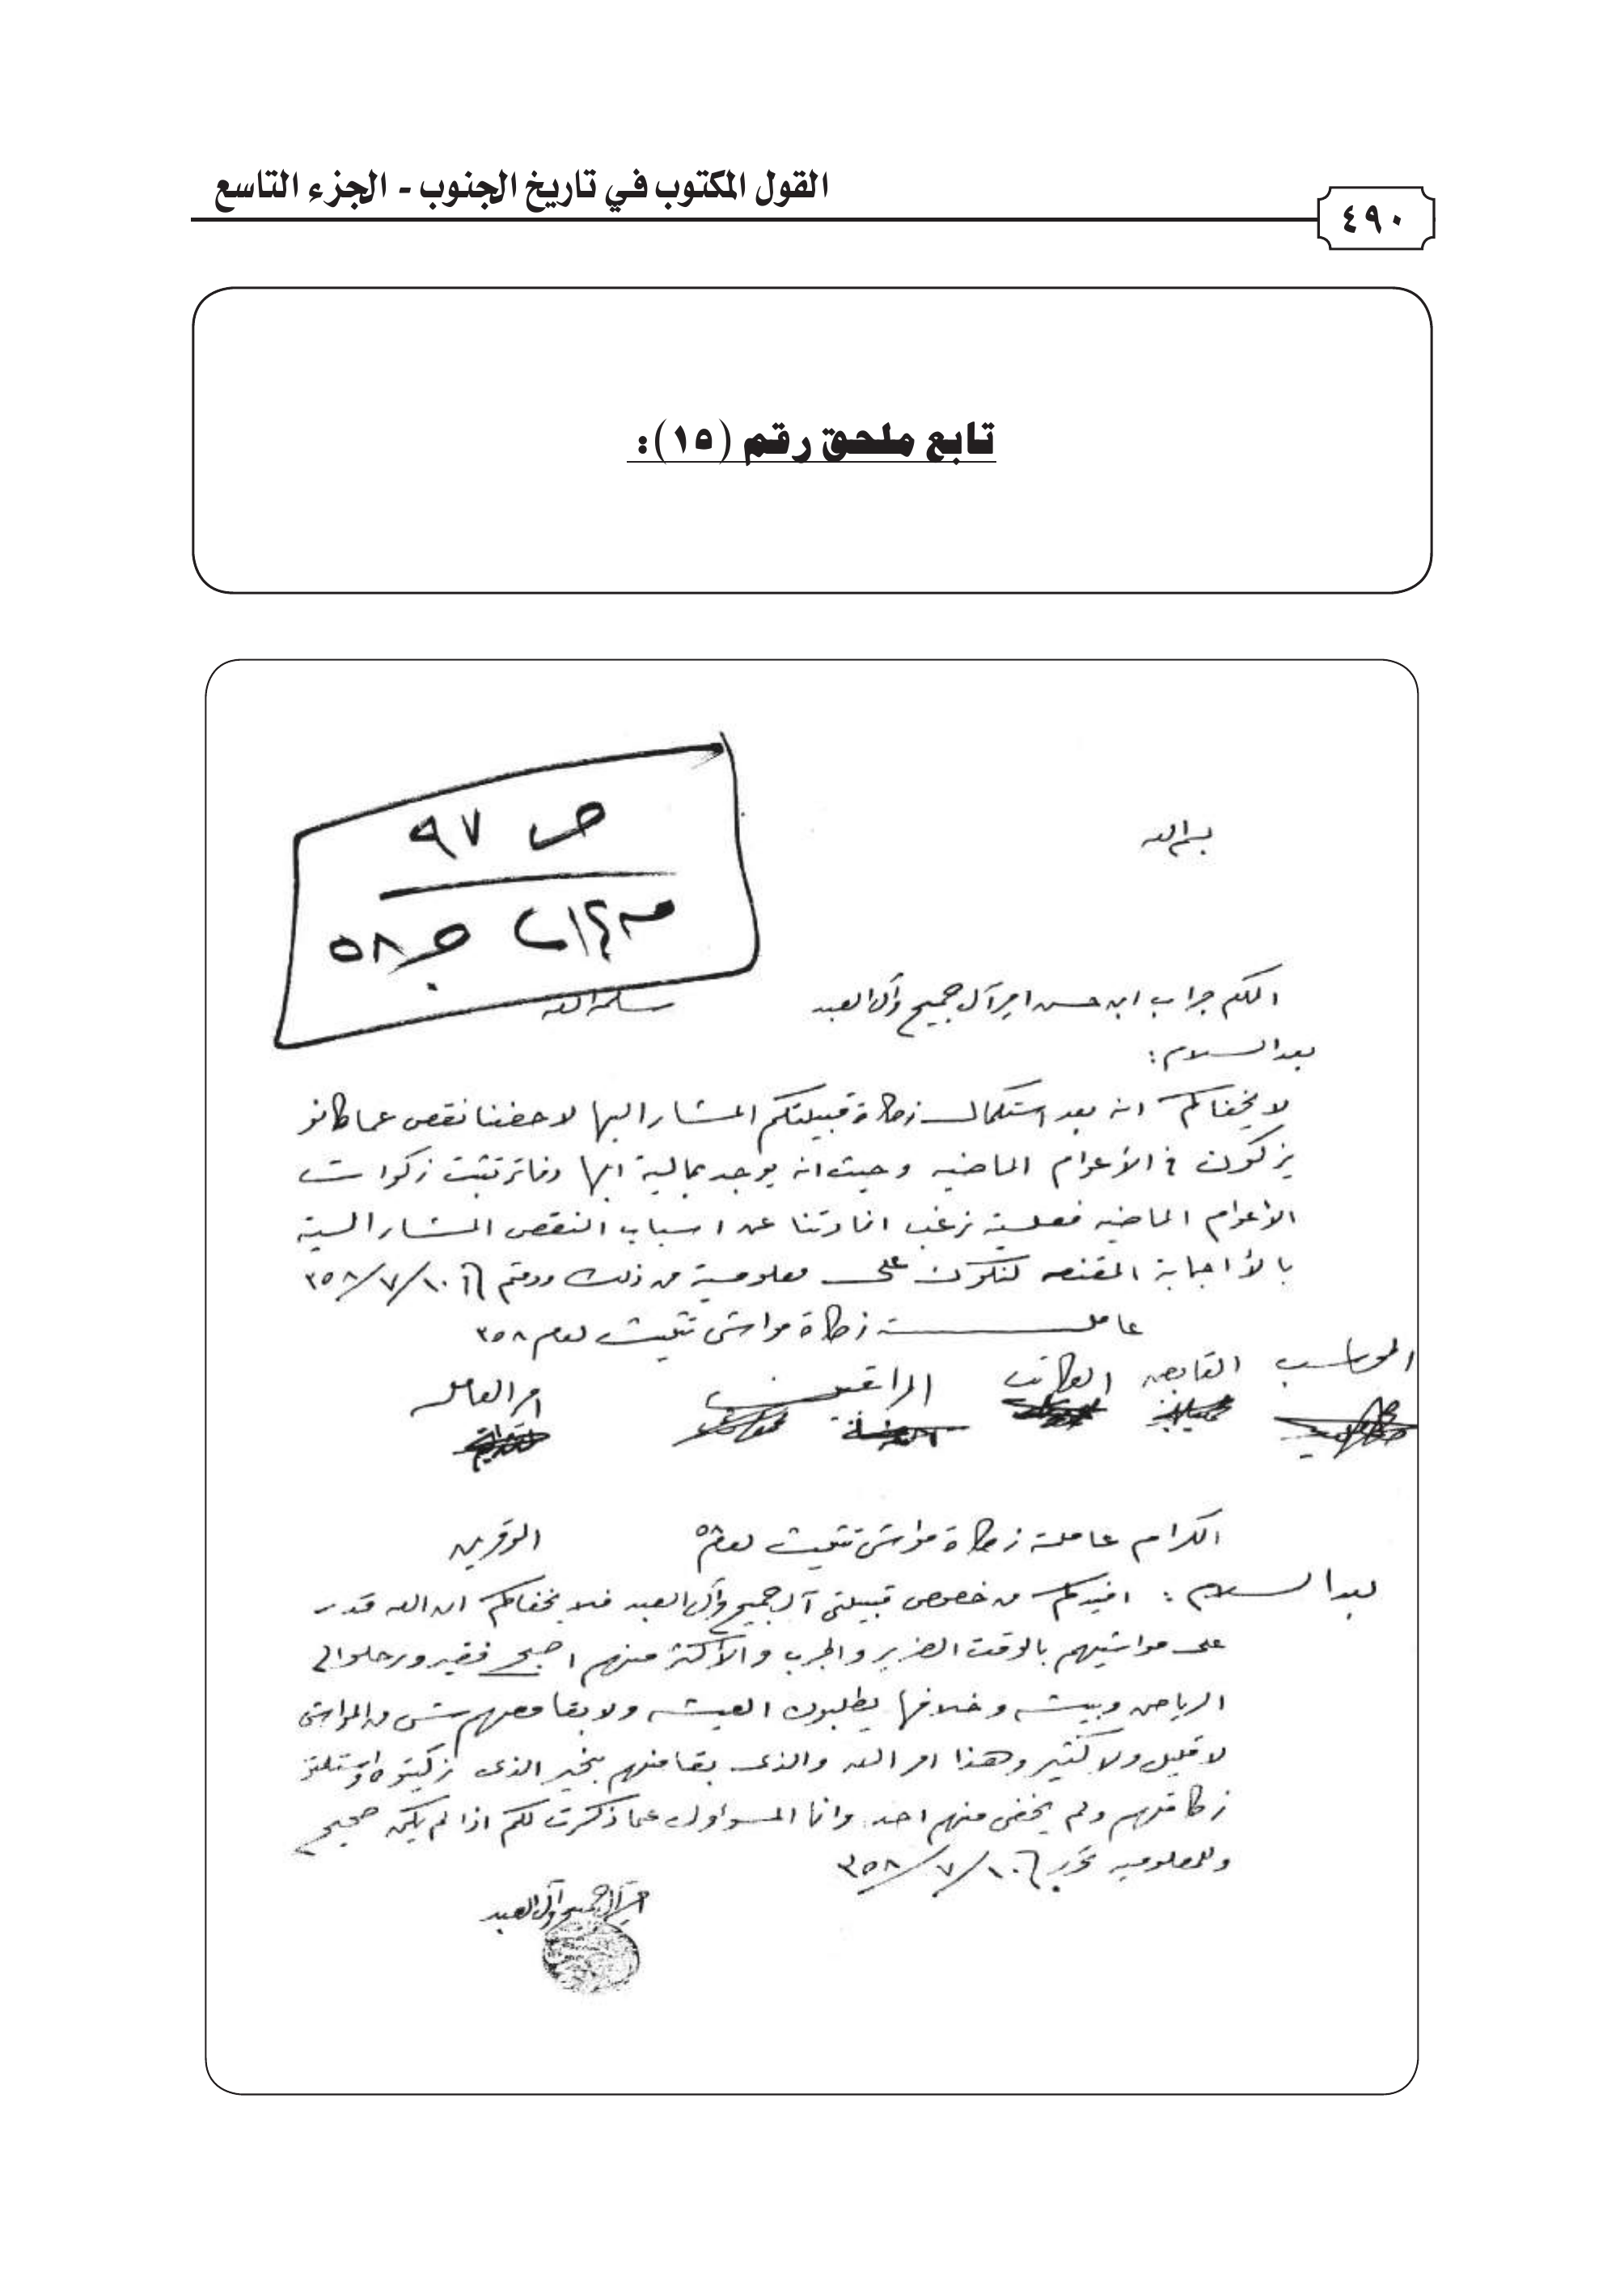 القول المكتوب في تاريخ الجنوب - الجزء التاسع
٤٩٠
تابع ملحق رقم (١٥):
ص ٩٧
ج ٥٨
بسم الله
المكرم جراب ابن حسن امير آل جميح وآل العبد سلمه الله
بعد السلام :
لا يخفاكم انه بعد استكمال زكاة قبيلتكم المشار اليها لاحضنا نقص عما كانو
يزكون في الأعوام الماضيه وحيث انه يوجد بمالية ابها دفاتر تثبت زكوات
الأعوام الماضيه فعليه نرغب افادتنا عن اسباب النقص المشار اليه
بالأجابة المقنعه لنكون على معلومية من ذلك ودمتم ١٠/٧/٣٥٨
عاملة زكاة مواشي تثليث لعام ٣٥٨
المحاسب القابض الكاتب المراقبين امير العامله
الكرام عاملة زكاة مواشي تثليث لعام ٥٨ الموقرين
بعد السلام : افيدكم من خصوص قبيلتي آل جميح وآل العبد فلا يخفاكم ان الله قدر
على مواشيهم بالوقت الضرير والجرب والأكثر منهم اصبح فقير ورحلوا الى
الرياض وبيشه وخلافها يطلبون العيشه ولا بقا معهم شي من المواشي
لا قليل ولا كثير وهذا امر الله والذي بقا منهم بخير الذي زكيتوه
زكاتهم ولم يخفى منهم احد وانا المسؤول عما ذكرت لكم اذا لم يكن صحيح
وللمعلوميه تحرر ١٠/٧/٣٥٨
امير آل جميح وآل العبد